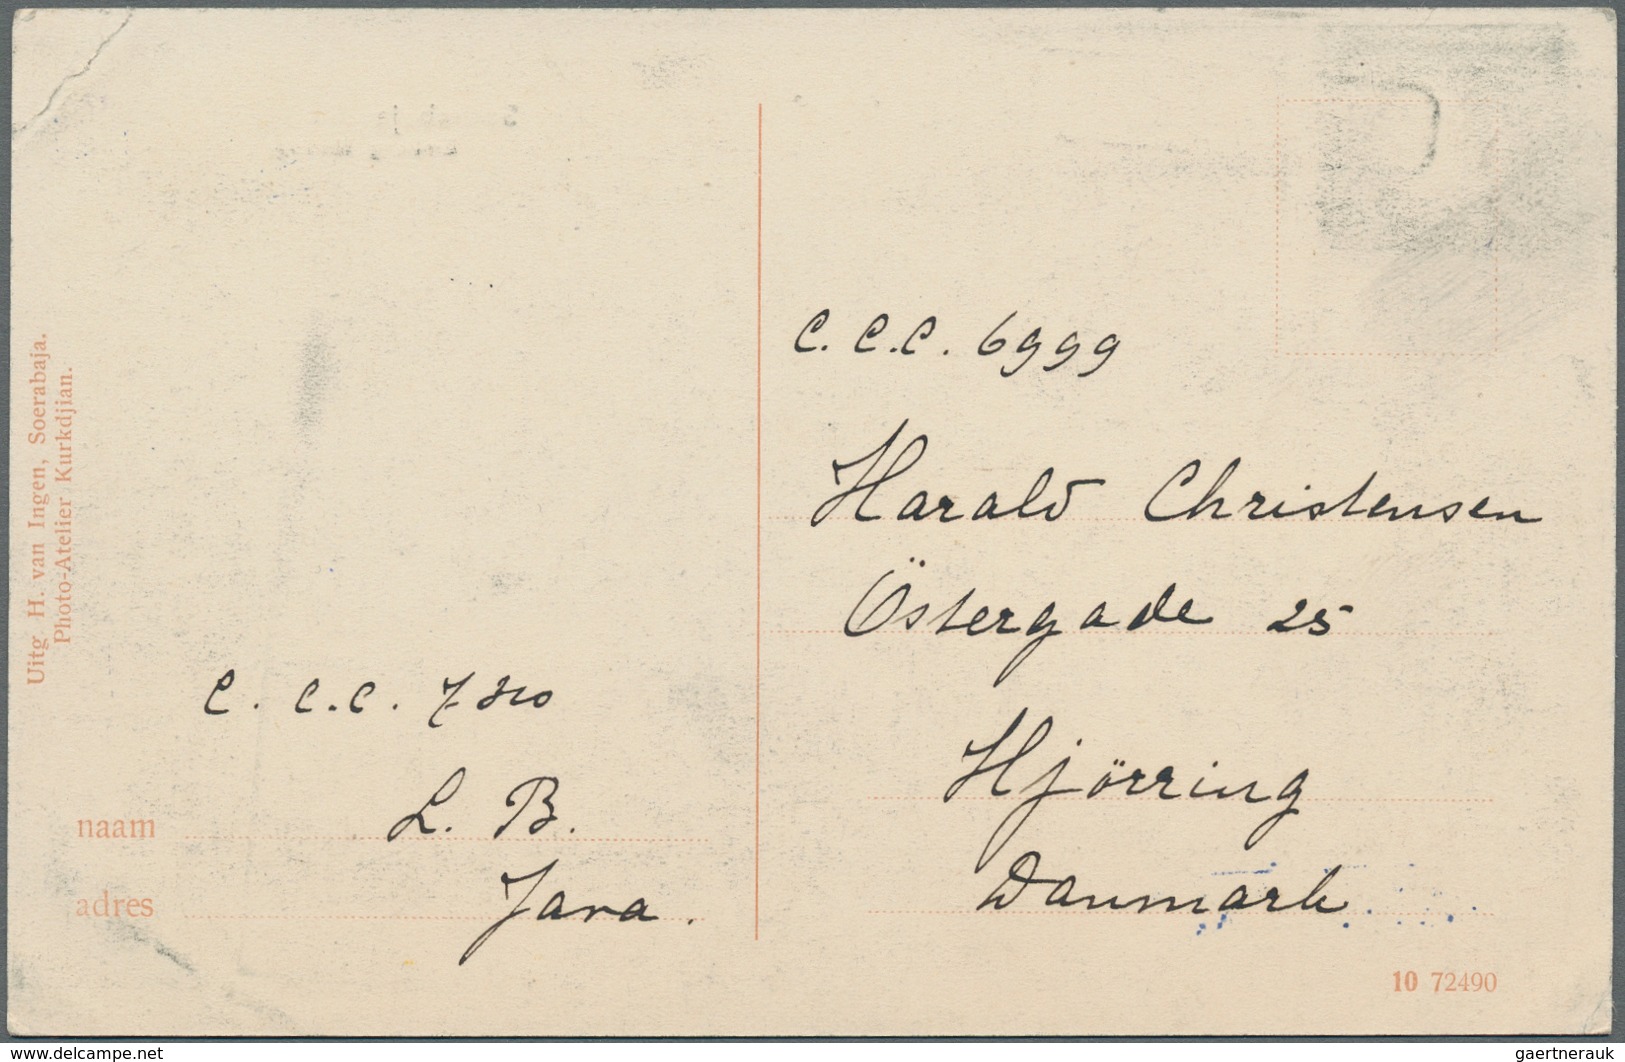 Uitg H. van Ingen, Soerabaja.
Photo-Atelier Kurkdjian.
C. C.C. 6999
Harald Christensen
Östergade 25
Hjörring
Danmark
C. C.C. 7310
L. B.
Java.
naam
adres
10 72490
www.delcampe.net
gaertnerauk